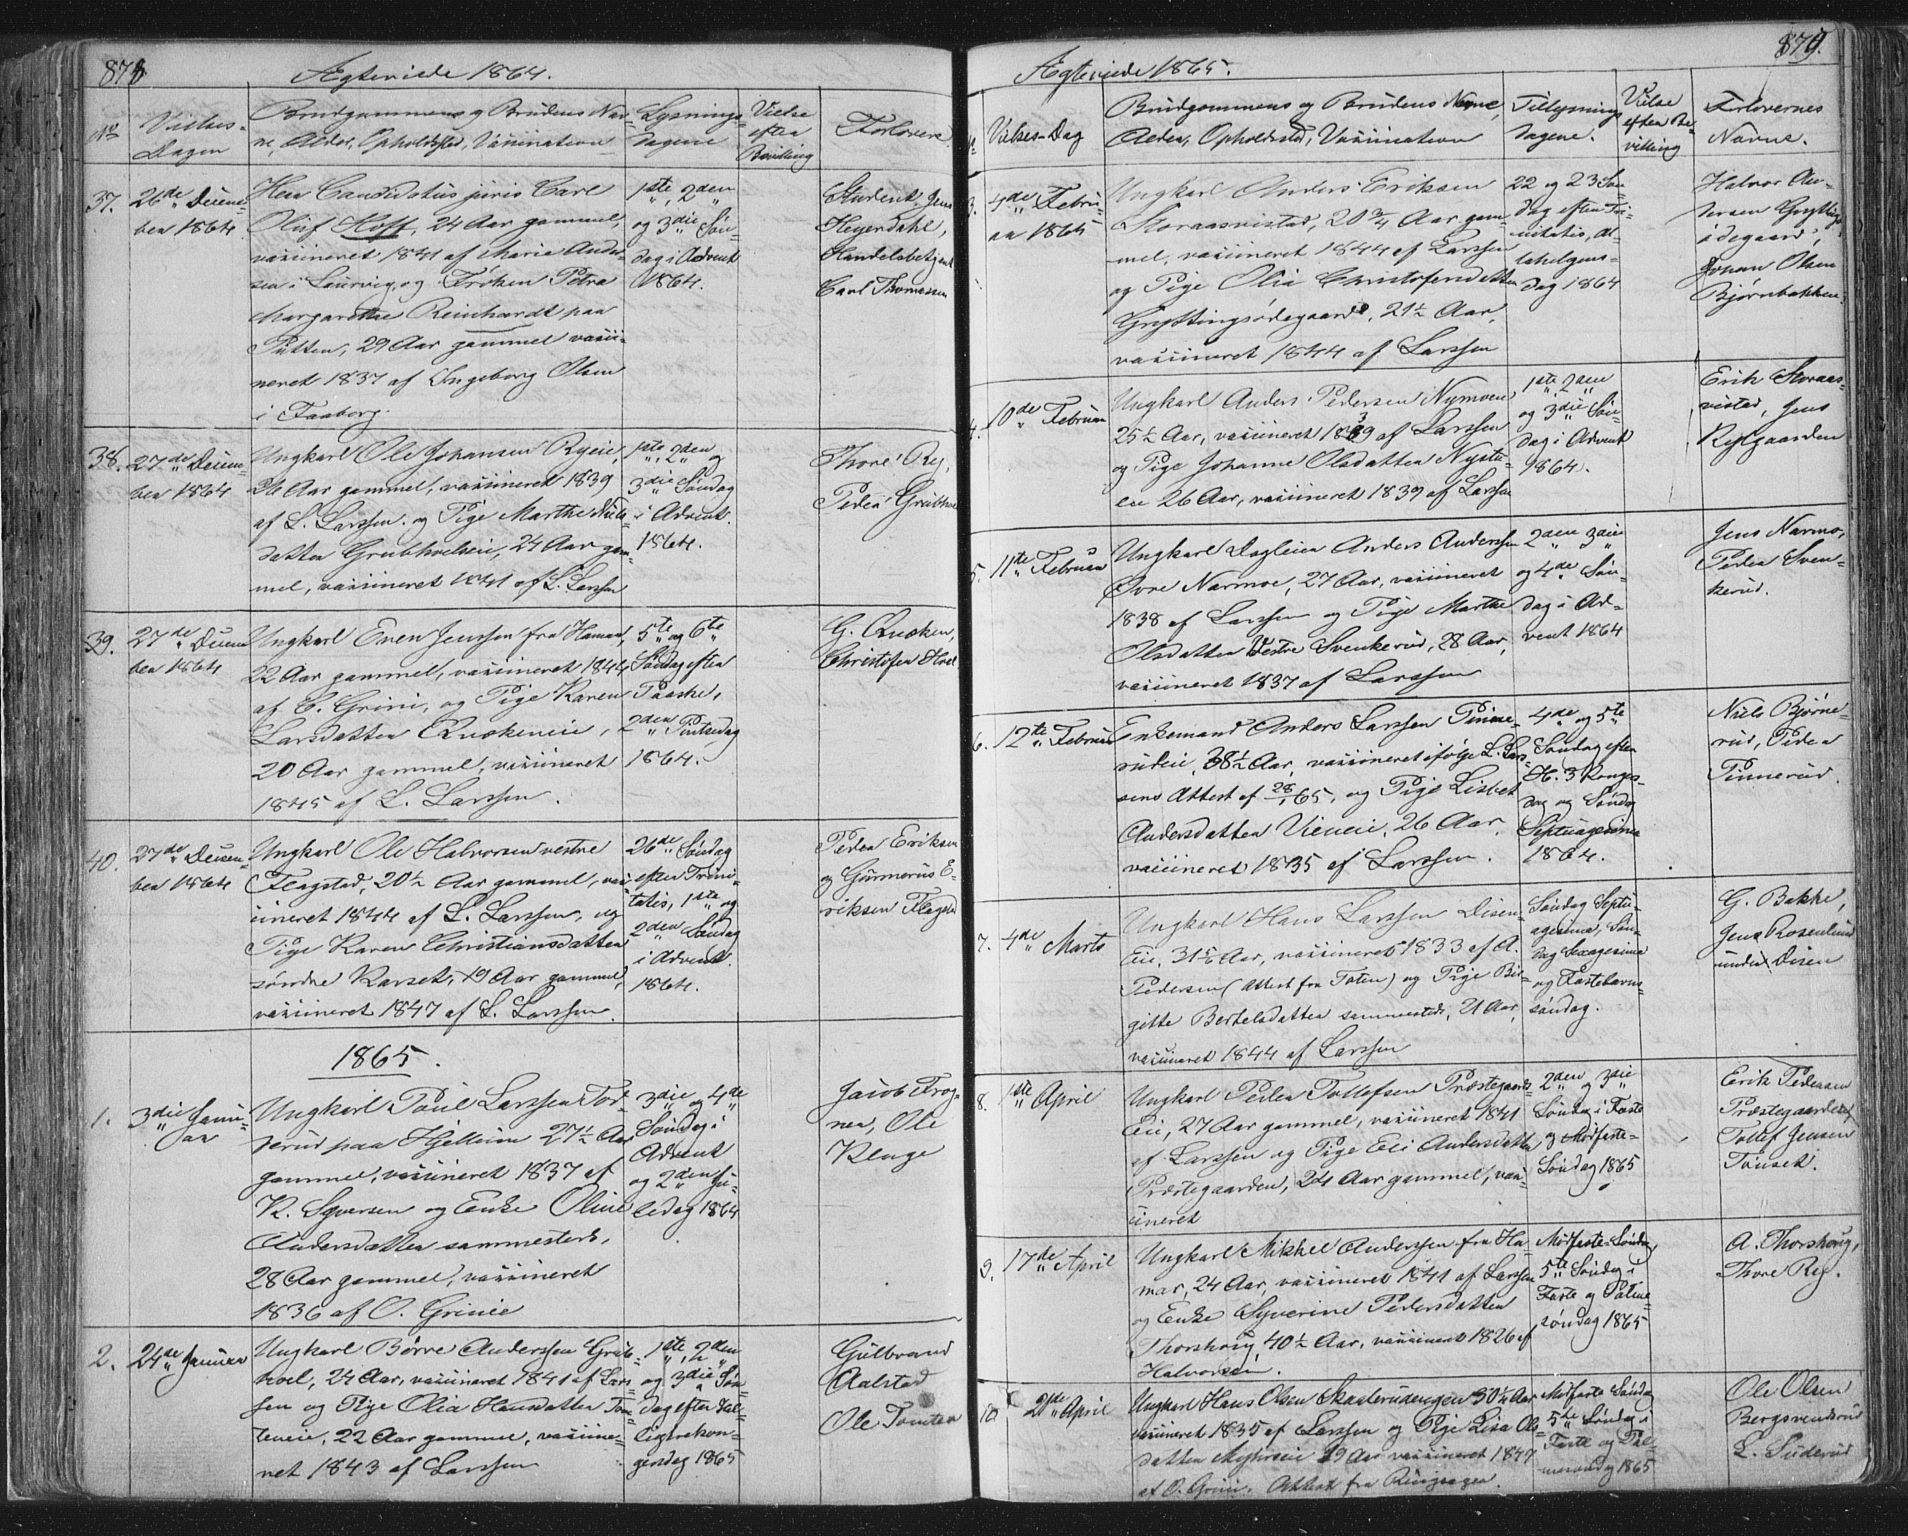 878
Ægteviede 1864.
No
Vielses-
Dagen
Brudgommens og Brudens Nav-
ne, Alder, Opholdssted, Vaccination
Lysnings-
dagene
Vielse
efter
Bevilling
Forlovere
37.
26de Decem-
ber 1864
Herr Candidatus juris Carl
Oluf Hoff, 24 Aar gammel,
vaccineret 1841 af Marie Ander-
sen i Laurvig, og Frøken Petra
Margarethe Reinhardt paa
Sutten, 29 Aar gammel vacci-
neret 1837 af Ingeborg Olsen
i Faaborg.
1ste, 2den
og 3die Søn-
dag i Advent
1864.
Student Jens
Heyerdahl,
Handelsbetjent
Carl Thomessen
38.
27de Decem-
ber 1864
Ungkarl Ole Johansen Ryeie,
26 Aar gammel, vaccineret 1839
af L. Larssen. og Pige Marthe Niels-
datter Grubhoelseie, 24 Aar gam-
mel, vaccineret 1841 af L. Larssen
1ste, 2den og
3die Søndag
i Advent.
1864.
Thore Ry,
Peder Grubhoel
39.
27de Decem-
ber 1864
Ungkarl Even Jenssen fra Hamar,
22 Aar gammel, vaccineret 1844
af C. Grini, og Pige Karen
Larsdatter Qvækeneie,
20 Aar gammel, vaccineret
1845 af L. Larssen.
5te og 6te
Søndag efter
Paaske,
2den Pintsedag
1864.
G. Qvæken,
Christofer Hoel
40.
27de Decem-
ber 1864
Ungkarl Ole Halvorsen vestre
Flagstad, 20½ Aar gammel, vac-
cineret 1844 af L. Larssen, og
Pige Karen Christiansdatter
søndre Karset, 19 Aar gammel,
vaccineret 1847 af L. Larssen.
26de Søndag
efter Trini-
tatis, 1ste og
2den Søndag
i Advent.
1864.
Peder Eriksen
og Gunnerus E-
riksen Flagstad
1865.
1.
3die Janu-
ar
Ungkarl Poul Larssen Tor-
derud paa Hjelleim 27½ Aar
gammel, vaccineret 1837 af
K. Syversen og Enke Oline
Andersdatter sammesteds,
28 Aar gammel, vaccineret
1836 af O. Grinie
3die og 4de
Søndag i
Advent
og 2den Ju-
ledag 1864
Jacob Trog-
ner, Ole
Klenge
2.
24de Januar
Ungkarl Børre Anderssen Grub-
hoel, 24 Aar, vaccineret 1841 af Lars-
sen og Pige Olia Hansdatter Tom-
tereie, 22 Aar gammel, vaccine-
ret 1843 af Larssen
1ste, 2den
og 3die Søn-
dag efter Hel-
ligtrekon-
gersdag 1865
Gulbrand
Aalstad
Ole Tomter
879.
Ægteviede 1865.
Vielses-Dag
Brudgommens og Brudens Navne,
Alder, Opholdssted, Vaccination
Tillysnings-
dagene.
Vielse
efter Be-
villing
Forlovernes
Navne.
3.
4de Febru-
ar 1865
Ungkarl Anders Eriksen
Storaasvistad, 20 ¾ Aar gam-
mel, vaccineret 1844 af Larssen
og Pige Olia Christofersdatter
Gryttingsødegaard, 21½ Aar,
vaccineret 1844 af Larssen
22 og 23 Søn-
dag efter Tri-
nitatis, Al-
lehelgens-
dag 1864
Halvor An-
dersen Gryttings-
ødegaard,
Johan Olsen
Bjørnbakken
4.
10de Februar
Ungkarl Anders Pedersen Nymoen
25½ Aar, vaccineret 1839 af Larssen
og Pige Johanne Olsdatter Nystu-
en 26 Aar, vaccineret 1839 af Larssen
1ste, 2den
og 3die Søn-
dag i Advent
1864.
Erik Storaas-
vistad, Jens
Rylgaarden
5.
11te Februar
Ungkarl Dagleier Anders Anderssen
Øvre Narmoe, 27 Aar, vaccineret
1838 af Larssen og Pige Marthe
Olsdatter Vestre Svenkerud, 28 Aar,
vaccineret 1837 af Larssen
2den 3die
og 4de Søn-
dag i Ad-
vent 1864
Jens Narmo,
Peder Sven-
kerud.
6.
12te Februar
Enkemand Anders Larssen Pinne-
rudeie, 38½ Aar, vaccineret ifølge L. Lar-
sens Attest af 28/1 65, og Pige Lisbet
Andersdatter Vieneie, 26 Aar,
vaccineret 1835 af Larssen.
4de og 5te
Søndag efter
H. 3 Konges-
dag og Søndag
Septuagesima
1864.
Niels Bjørne-
rud, Peder
Pinnerud.
7.
4de Marts
Ungkarl Hans Larssen Disen-
Eie, 31 5/6 Aar, vaccineret 1833 af A.
Pedersen (Attest fra Toten) og Pige Bir-
gitte Bertelsdatter sammesteds, 21 Aar,
vaccineret 1844 af Larssen
Søndag Septu-
agesima, Søn-
dag Sexagesima
og Fastelavns-
søndag.
G. Bakke,
Jens Rosenlund
under Disen
8.
1ste April
Ungkarl Peder Tollefsen Præstegaards
Eie, 27 Aar gammel, vaccineret 1841
af Larssen og Pige Eli Andersdatter
Præstegaarden, 24 Aar gammel, vac-
cineret
2den og 3die
Søndag i Faste
og Midfaste-
Søndag 1865
Erik Pedersen
Præstegaardseie
Tollef Jensen
Tønset.
9.
17de April
Ungkarl Mikkel Anderssen fra Ha-
mar, 24 Aar, vaccineret 1841 af Larssen
og Enke Syverine Pedersdatter
Thorshoug, 40½ Aar, vaccineret 1826 af
Halvorsen.
Midfaste-Søndag
5te Søndag i
Faste og Palme-
søndag 1865
A. Thorshoug,
Thore Ry.
10
21de April
Ungkarl Hans Olsen Skasterudengen 30¼ Aar
vaccineret 1835 af Larssen og Pige Lisa Ols-
datter 19 Aar vaccineret 1847
af O. Grini. Attest fra Ringsager.
Midfaste Søndag
5te Søndag i
Faste og Pal-
mesøndag 1865
Ole Olsen
Bergsvendrud
L. Suderud